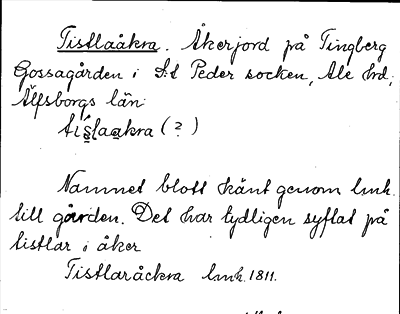 Tistlaåkra. Åkerjord på Tingberg
Gossagården i S:t Peder socken, Ale hd,
Älfsborgs län
tislaakra (?)
Namnet blott känt genom lmh.
till gården. Det har tydligen syftat på
tistlar i åker
Tistlaråckra lmh. 1811.